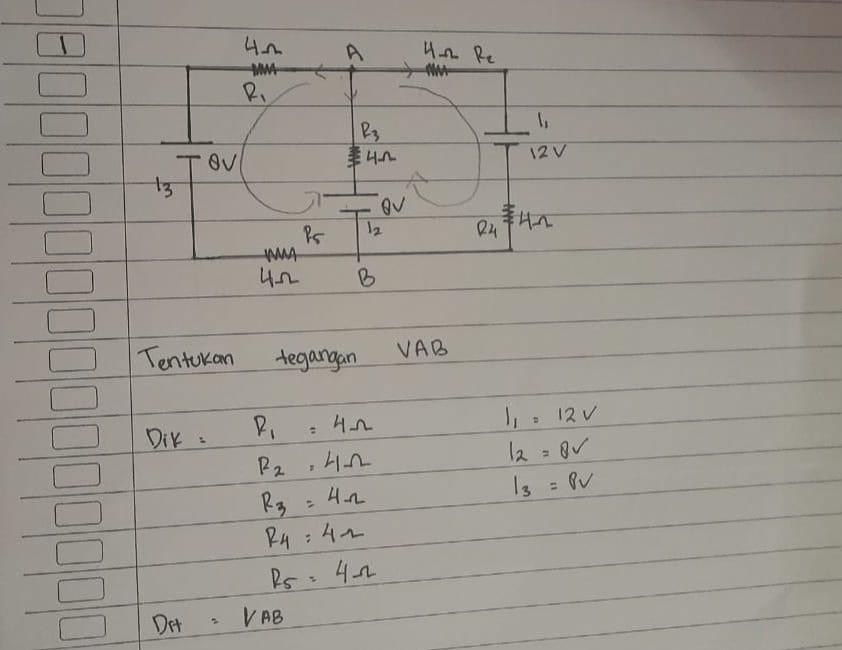 1
4Ω A 4Ω R2
R1
R3
4Ω
I1
12V
8V
I3
8V
I2
R5
R4 4Ω
4Ω B
Tentukan tegangan VAB
Dik = R1 = 4Ω I1 = 12V
R2 = 4Ω I2 = 8V
R3 = 4Ω I3 = 8V
R4 = 4Ω
R5 = 4Ω
Dit = VAB